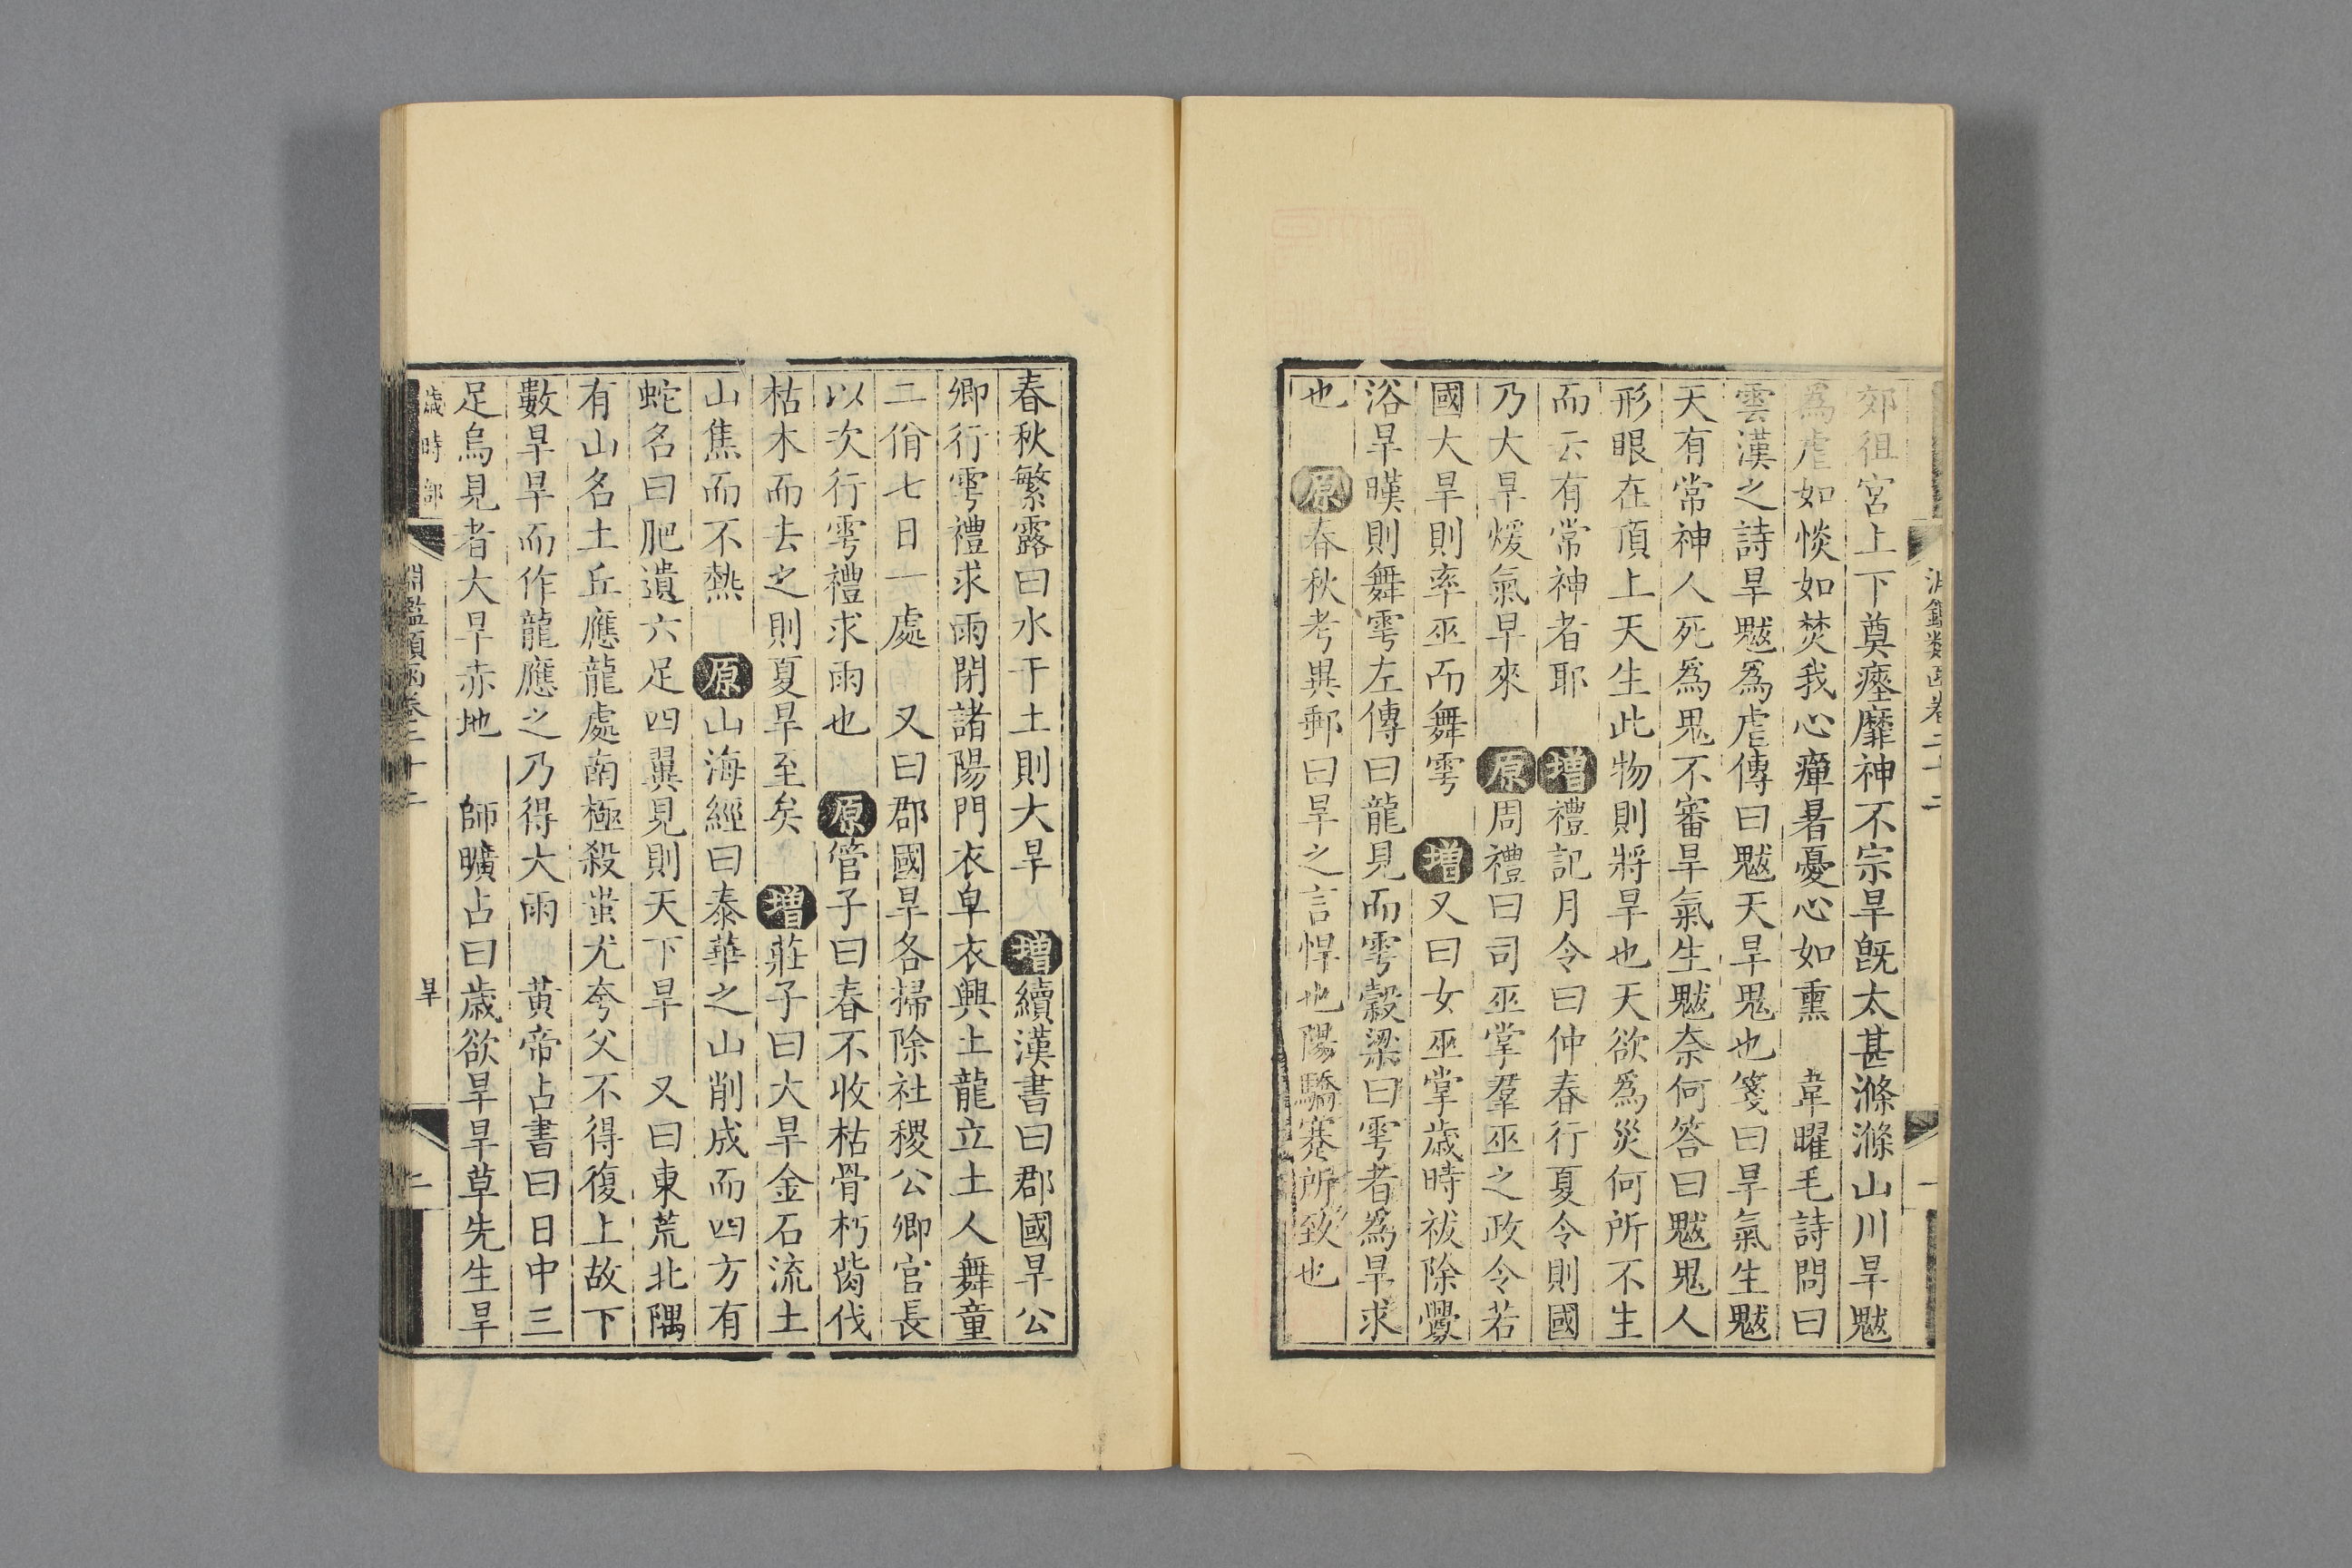 郊徂宮上下奠瘞靡神不宗旱旣太甚滌滌山川旱魃
爲虐如惔如焚我心癉暑憂心如熏　韋曜毛詩問曰
雲漢之詩旱魃爲虐傳曰魃天旱鬼也箋曰旱氣生魃
天有常神人死爲鬼不審旱氣生魃奈何答曰魃鬼人
形眼在頂上天生此物則將旱也天欲爲災何所不生
而云有常神者耶　增禮記月令曰仲春行夏令則國
乃大旱煖氣早來　原周禮曰司巫掌羣巫之政令若
國大旱則率巫而舞雩　增又曰女巫掌歲時祓除釁
浴旱暵則舞雩左傳曰龍見而雩穀梁曰雩者爲旱求
也　原春秋考異郵曰旱之言悍也陽驕蹇所致也
春秋繁露曰水干土則大旱　增續漢書曰郡國旱公
卿行雩禮求雨閉諸陽門衣皁衣興土龍立土人舞童
二佾七日一處　又曰郡國旱各掃除社稷公卿官長
以次行雩禮求雨也　原管子曰春不收枯骨朽胔伐
枯木而去之則夏旱至矣　增莊子曰大旱金石流土
山焦而不熱　原山海經曰泰華之山削成而四方有
蛇名曰肥遺六足四翼見則天下旱　又曰東荒北隅
有山名土丘應龍處南極殺蚩尤夸父不得復上故下
數旱旱而作龍應之乃得大雨　黃帝占書曰日中三
足烏見者大旱赤地　師曠占曰歲欲旱旱草先生旱
歲時部　淵鑑類函卷二十二　旱　二